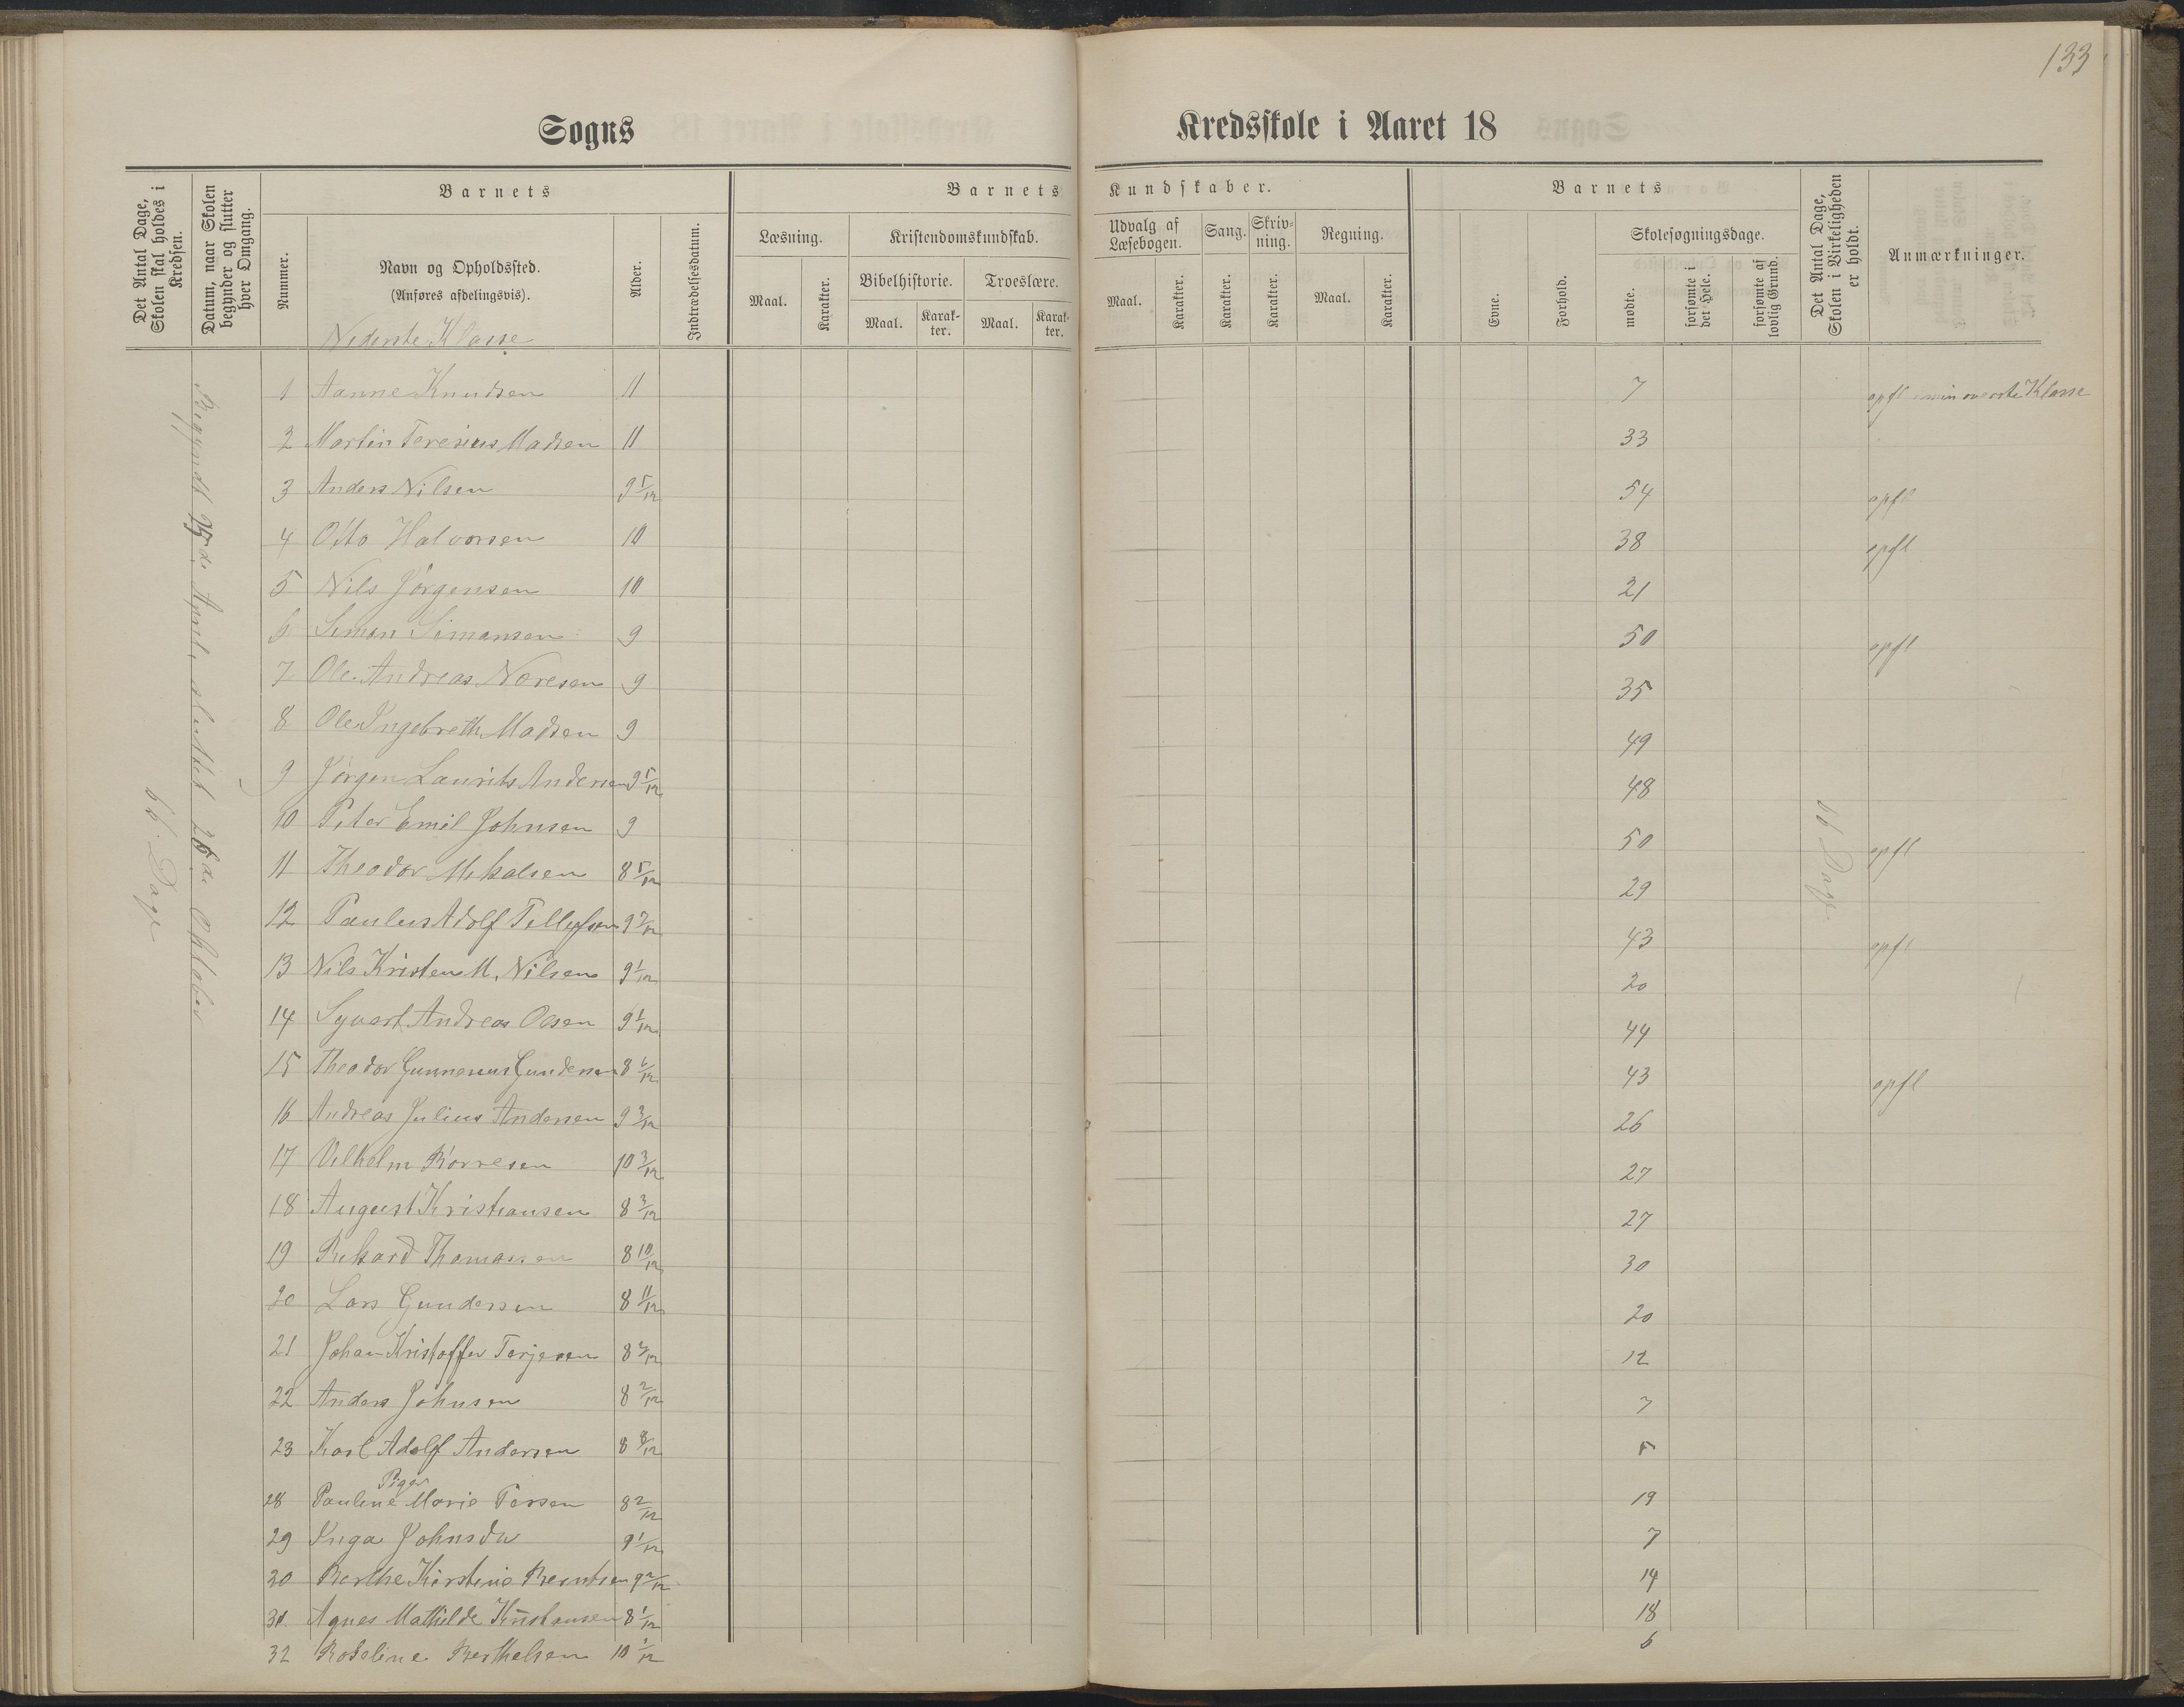 133
Sogns Kredsskole i Aaret 18
Det Antal Dage, Skolen skal holdes i Kredsen.
Datum, naar Skolen begynder og slutter hver Omgang.
Barnets
Nummer.
Navn og Opholdssted.
(Anføres afdelingsvis).
Alder.
Indtrædelsesdatum.
Barnets Kundskaber.
Læsning.
Maal.
Karakter.
Kristendomskundskab.
Bibelhistorie.
Maal.
Karakter.
Troeslære.
Maal.
Karakter.
Udvalg af Læsebogen.
Maal.
Karakter.
Sang.
Karakter.
Skrivning.
Karakter.
Regning.
Maal.
Karakter.
Barnets
Evne.
Forhold.
Skolesøgningsdage.
mødte.
forsømte i det Hele.
forsømte af lovlig Grund.
Det Antal Dage, Skolen i Virkeligheden er holdt.
Anmærkninger.
Nederste Klasse
Begyndt de April, sluttet 26de Oktober
Dage
Dage
1 Aanne Knudsen 11 7 opfl øverste Klasse
2 Martin Teresius Madsen 11 33
3 Anders Nilsen 9 5/12 54 opfl
4 Otto Halvorsen 10 38 opfl
5 Nils Jörgensen 10 21
6 Simon Simonsen 9 50 opfl
7 Ole Andreas Noresen 9 35
8 Ole Ingebreth Madsen 9 49
9 Jörgen Laurits Andersen 9 5/12 48
10 Peter Emil Johnsen 9 50 opfl
11 Theodor Mikalsen 8 5/12 29
12 Paulus Adolf Tellefsen 9 7/12 43 opfl
13 Nils Kristen M. Nilsen 9 1/12 20
14 Syvart Andreas Olsen 9 1/12 44
15 Theodor Gunnerius Gundersen 8 6/12 43 opfl
16 Andreas Julius Andersen 9 3/12 26
17 Vilhelm Börresen 10 3/12 27
18 August Kristiansen 8 3/12 27
19 Rikard Thomassen 8 10/12 30
20 Lars Gundersen 8 11/12 20
21 Johan Kristoffer Terjesen 8 12
22 Anders Johnsen 8 2/12 7
23 Karl Adolf Andersen 8 8/12 5
Piger
28 Pauline Marie Persen 8 2/12 19
29 Inga Johnsdu 9 1/12 7
30 Berthe Kirstine Berntsen 9 2/12 14
31 Agnes Mathilde Kristiansen 8 1/12 18
32 Roseline Berthelsen 10 1/12 6